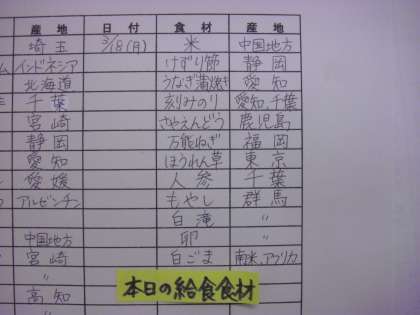 産地 日付 食材 産地
埼玉 3/18(月) 米 中国地方
インドネシア けずり節 静岡
北海道 うなぎ蒲焼き 愛知
千葉 刻みのり 愛知、千葉
宮崎 さやえんどう 鹿児島
静岡 万能ねぎ 福岡
愛知 ほうれん草 東京
愛媛 人参 千葉
アルゼンチン もやし 群馬
白滝 〃
中国地方 卵 〃
宮崎 白ごま 南米、アフリカ
〃
高知
本日の給食食材